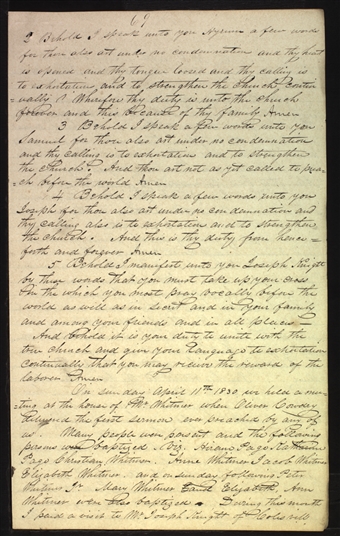 67
2 Behold I speak unto you Hyrum a few words
for thou also art under no condemnation and thy heart
is opened and thy tongue loosed and thy calling is
to exhortation, and to strengthen the church contin=
=ually Wherefore thy duty is unto the church
forever and this because of thy family Amen
3 Behold I speak a few words unto you
Samuel for thou also art under no condemnation
and thy calling is to exhortation and to strengthen
the Church. And thou art not as yet called to prea=
ch before the world Amen
4 Behold I speak a few words unto you
Joseph for thou also art under no condemnation and
thy calling also is to exhortation and to strengthen
the church. And this is thy duty from hence=
forth and forever Amen.
5 Behold I manifest unto you Joseph Knight
by these words that you must take up your cross
in the which you must pray vocally before the
world as well as in secret and in your family
and among your friends and in all places
And behold it is your duty to unite with the
true church and give your language to exhortation
continually that you may receive the reward of the
laborer Amen
On sunday April 11th 1830 we held a me=
eting at the house of Mr Whitmer when Oliver Cowdery
delivered the first sermon ever preached by any of
us. Many people were present and the following
persons were baptized. Hiram Page
Page Christian Whitmer. Anne Whitmer Jacob Whitmer
Elizabeth Whitmer. and on sunday following Peter
Whitmer Jr. Mary Whitmer and Elizabeth Ann
Whitmer were also baptized. During this month
I paid a visit to Mr Joseph Knight of Colesville